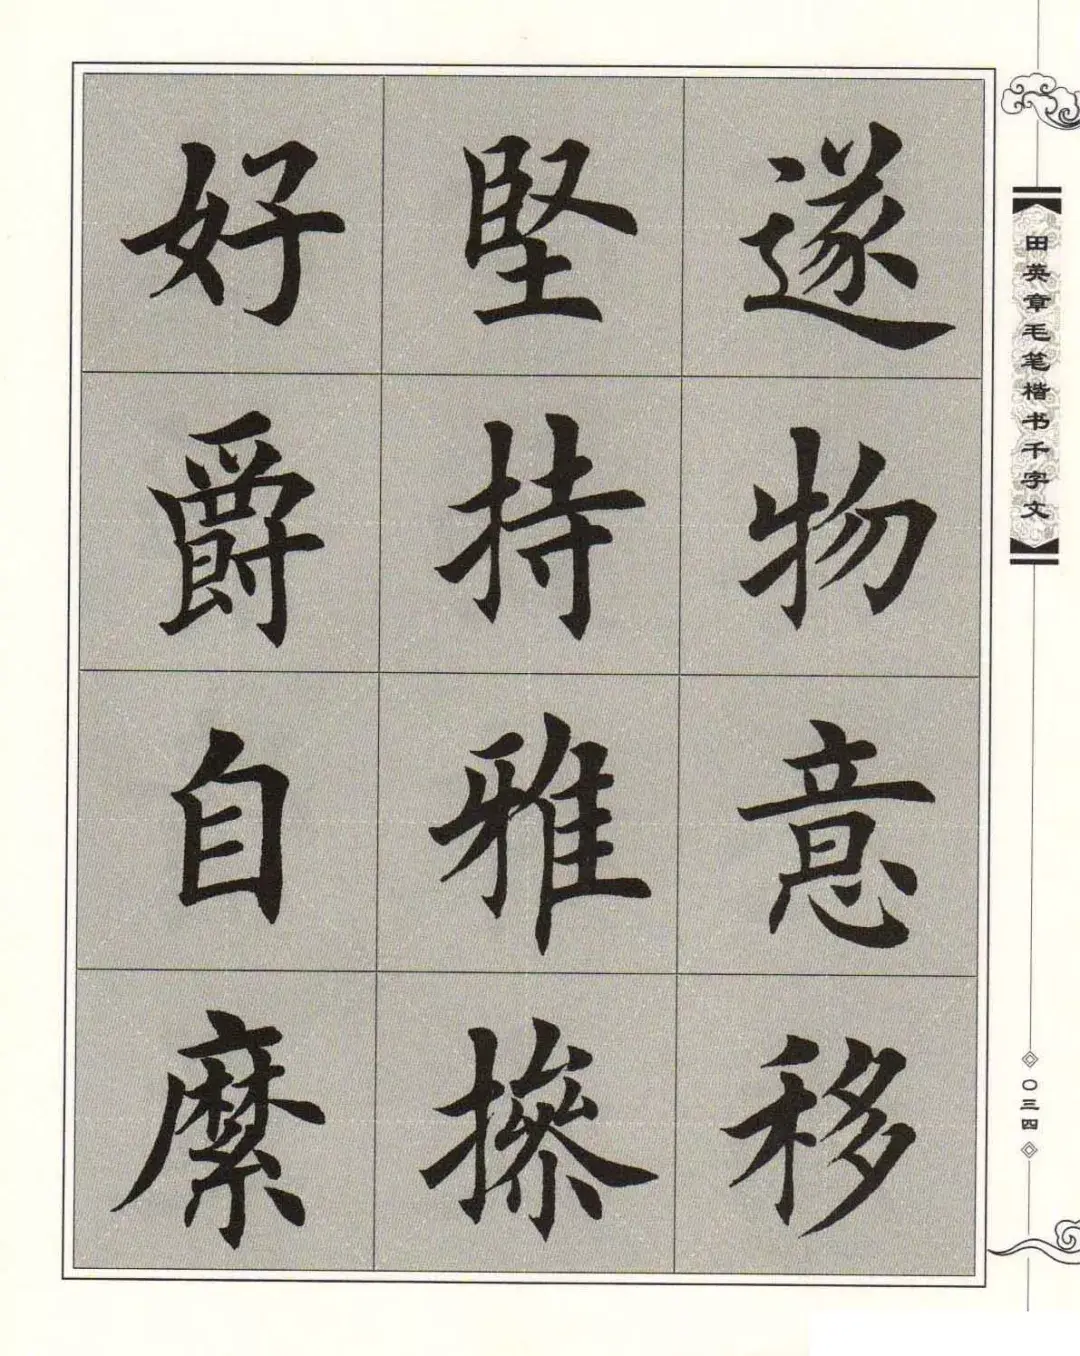 田英章毛笔楷书千字文
遂物意移
堅持雅摻
好爵自縻
〇三四